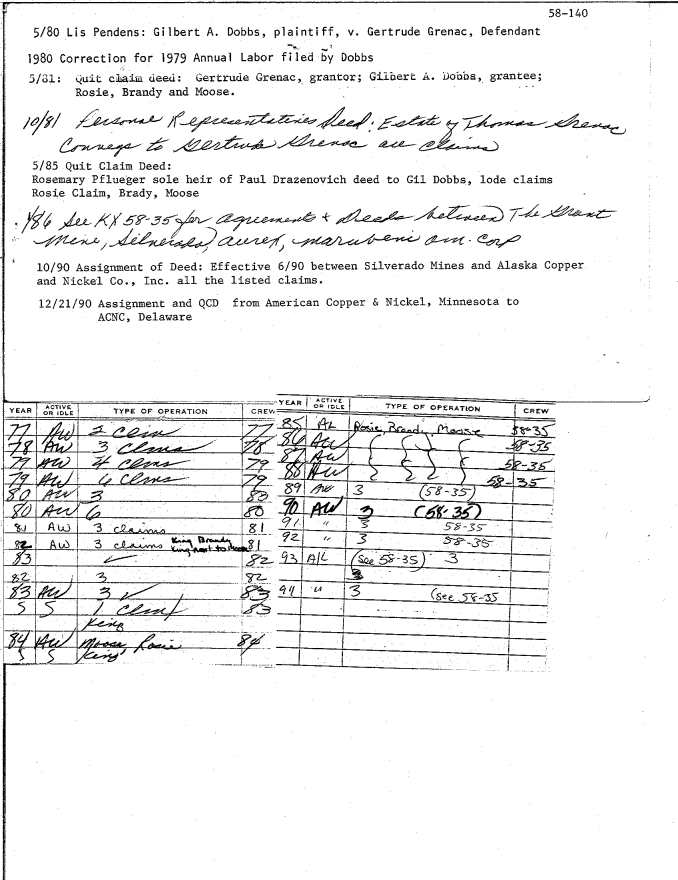 58-140
5/80 Lis Pendens: Gilbert A. Dobbs, plaintiff, v. Gertrude Grenac, Defendant
1980 Correction for 1979 Annual Labor filed by Dobbs
5/81: Quit claim deed: Gertrude Grenac, grantor; Gilbert A. Dobbs, grantee;
Rosie, Brandy and Moose.
10/81 Personal Representatives Deed: Estate of Thomas Grenac
Conveys to Gertrude Grenac all claims
5/85 Quit Claim Deed:
Rosemary Pflueger sole heir of Paul Drazenovich deed to Gil Dobbs, lode claims
Rosie Claim, Brady, Moose
/86 See KX 58-35 for agreements + Deeds between The Grant
Mine, Silverado, Aurex, marubeni am. Corp
10/90 Assignment of Deed: Effective 6/90 between Silverado Mines and Alaska Copper
and Nickel Co., Inc. all the listed claims.
12/21/90 Assignment and QCD from American Copper & Nickel, Minnesota to
ACNC, Delaware
YEAR ACTIVE OR IDLE TYPE OF OPERATION CREW
77 AW 2 Clim 77
78 AW 3 Clms 78
79 AW 4 Clms 79
79 AW 6 Clms 79
80 AW 3 80
80 AW 6 80
81 AW 3 claims 81
82 AW 3 claims King Brandy 81
King next to Moose
83 ✓ 82
82 3 82
83 AW 3 ✓ 83
5 5 1 Clmt 83
King
84 AW Moose, Rosie 84
5 5 King
YEAR ACTIVE OR IDLE TYPE OF OPERATION CREW
85 AL Rosie, Brandy, Moosie 58-35
86 AW 58-35
87 AW 58-35
88 AW 58-35
89 AW 3 (58-35)
90 AW 3 (58-35)
91 " 3 58-35
92 " 3 58-35
93 A/L (see 58-35) 3
94 " 3 (see 58-35